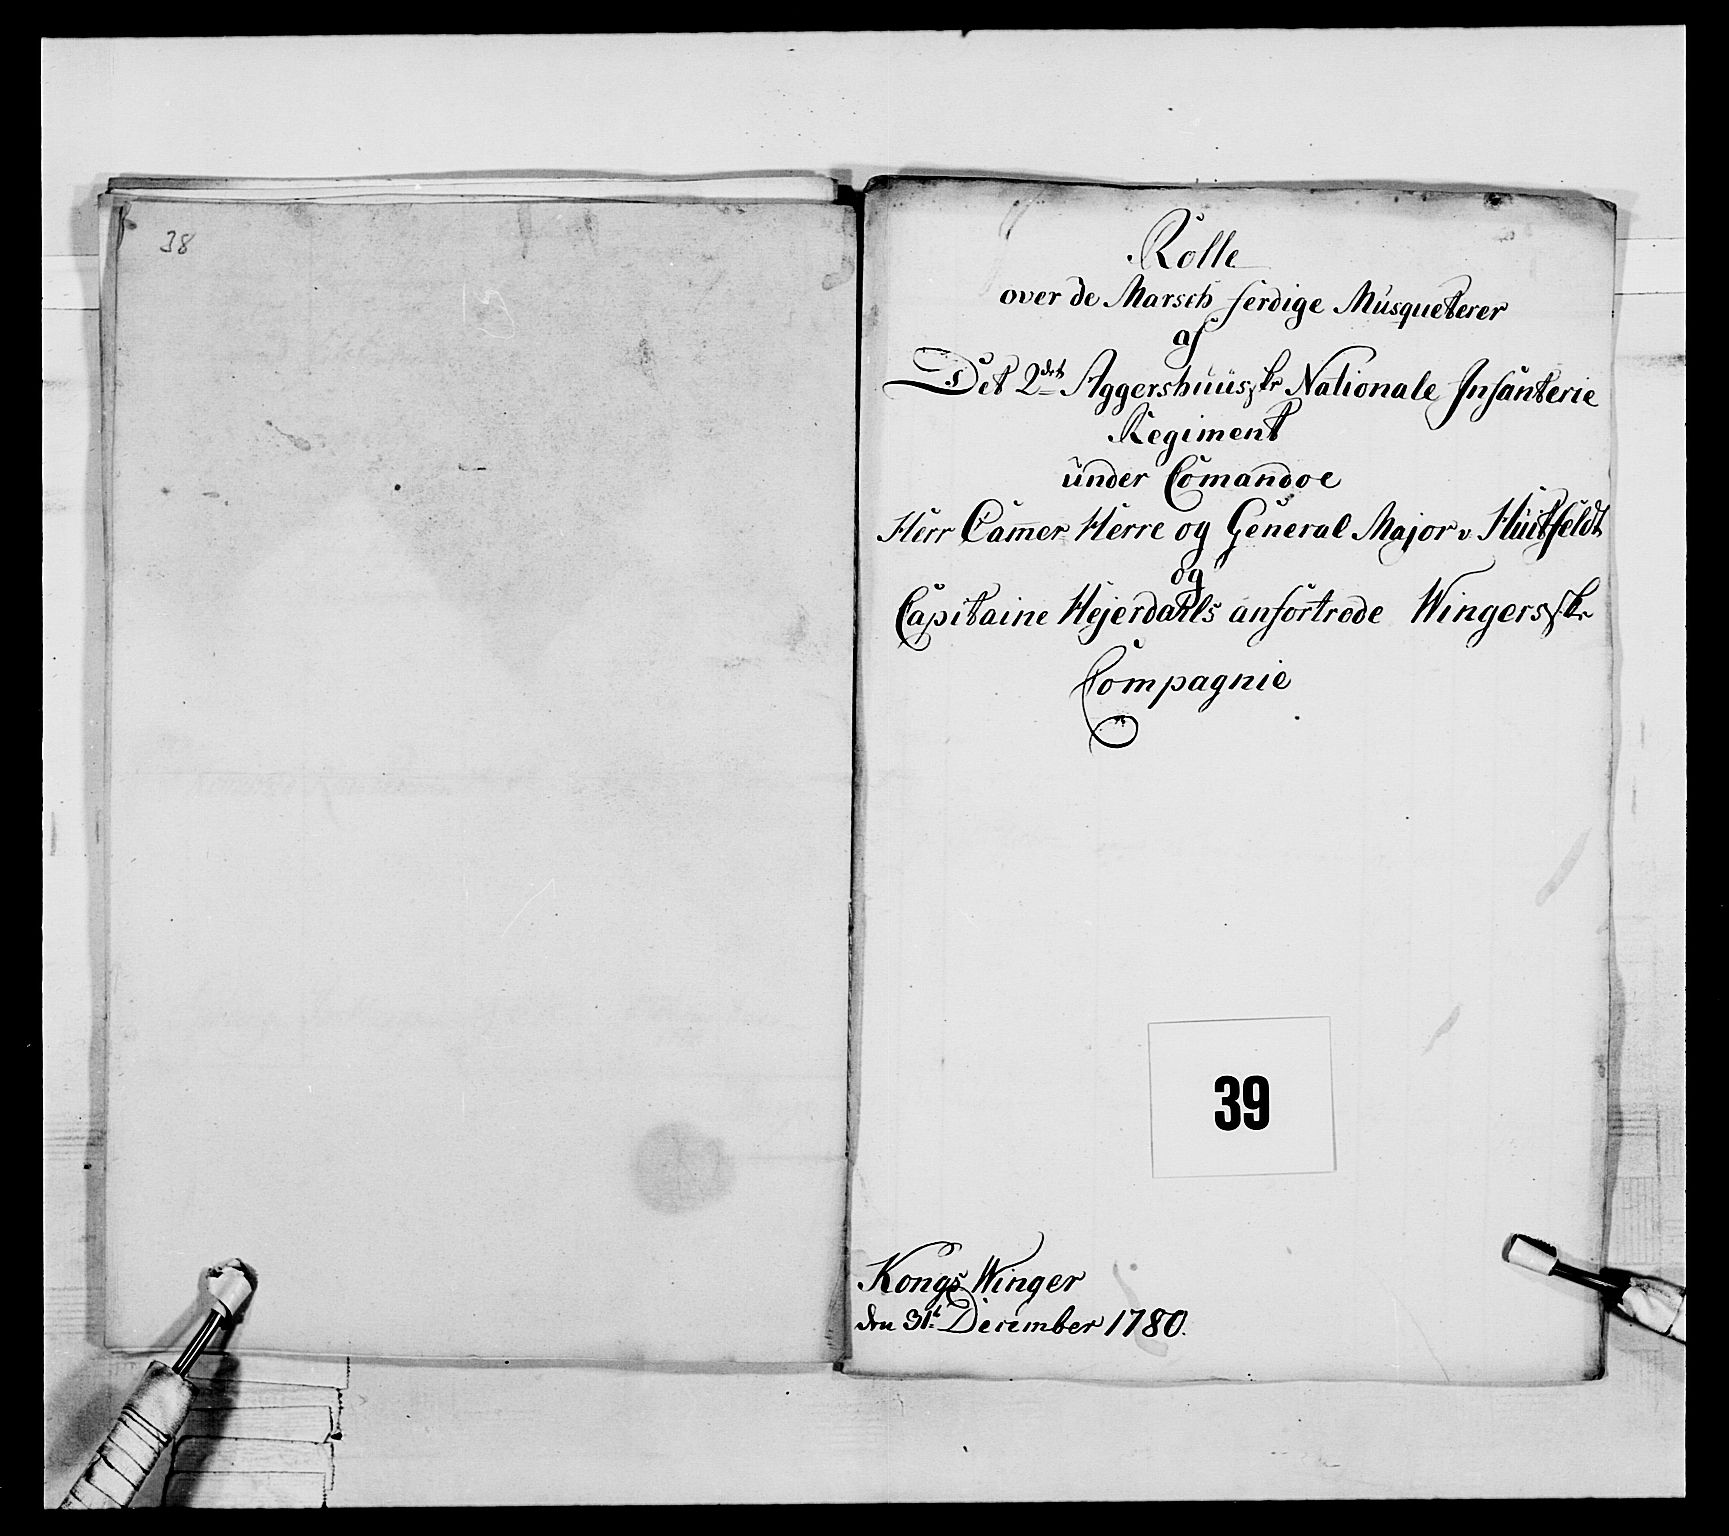 38
Rolle
over de Marsch ferdige Musqueterer
af
Det 2det Aggershuusske Nationale Infanterie
Regiment
under Comandoe
Herr Cam̄er Herre og General Major v Huitfeldt
og
Capitaine Hejerdahls anfortrode Wingerske
Compagnie
39
Kongs Winger
den 31t December 1780.